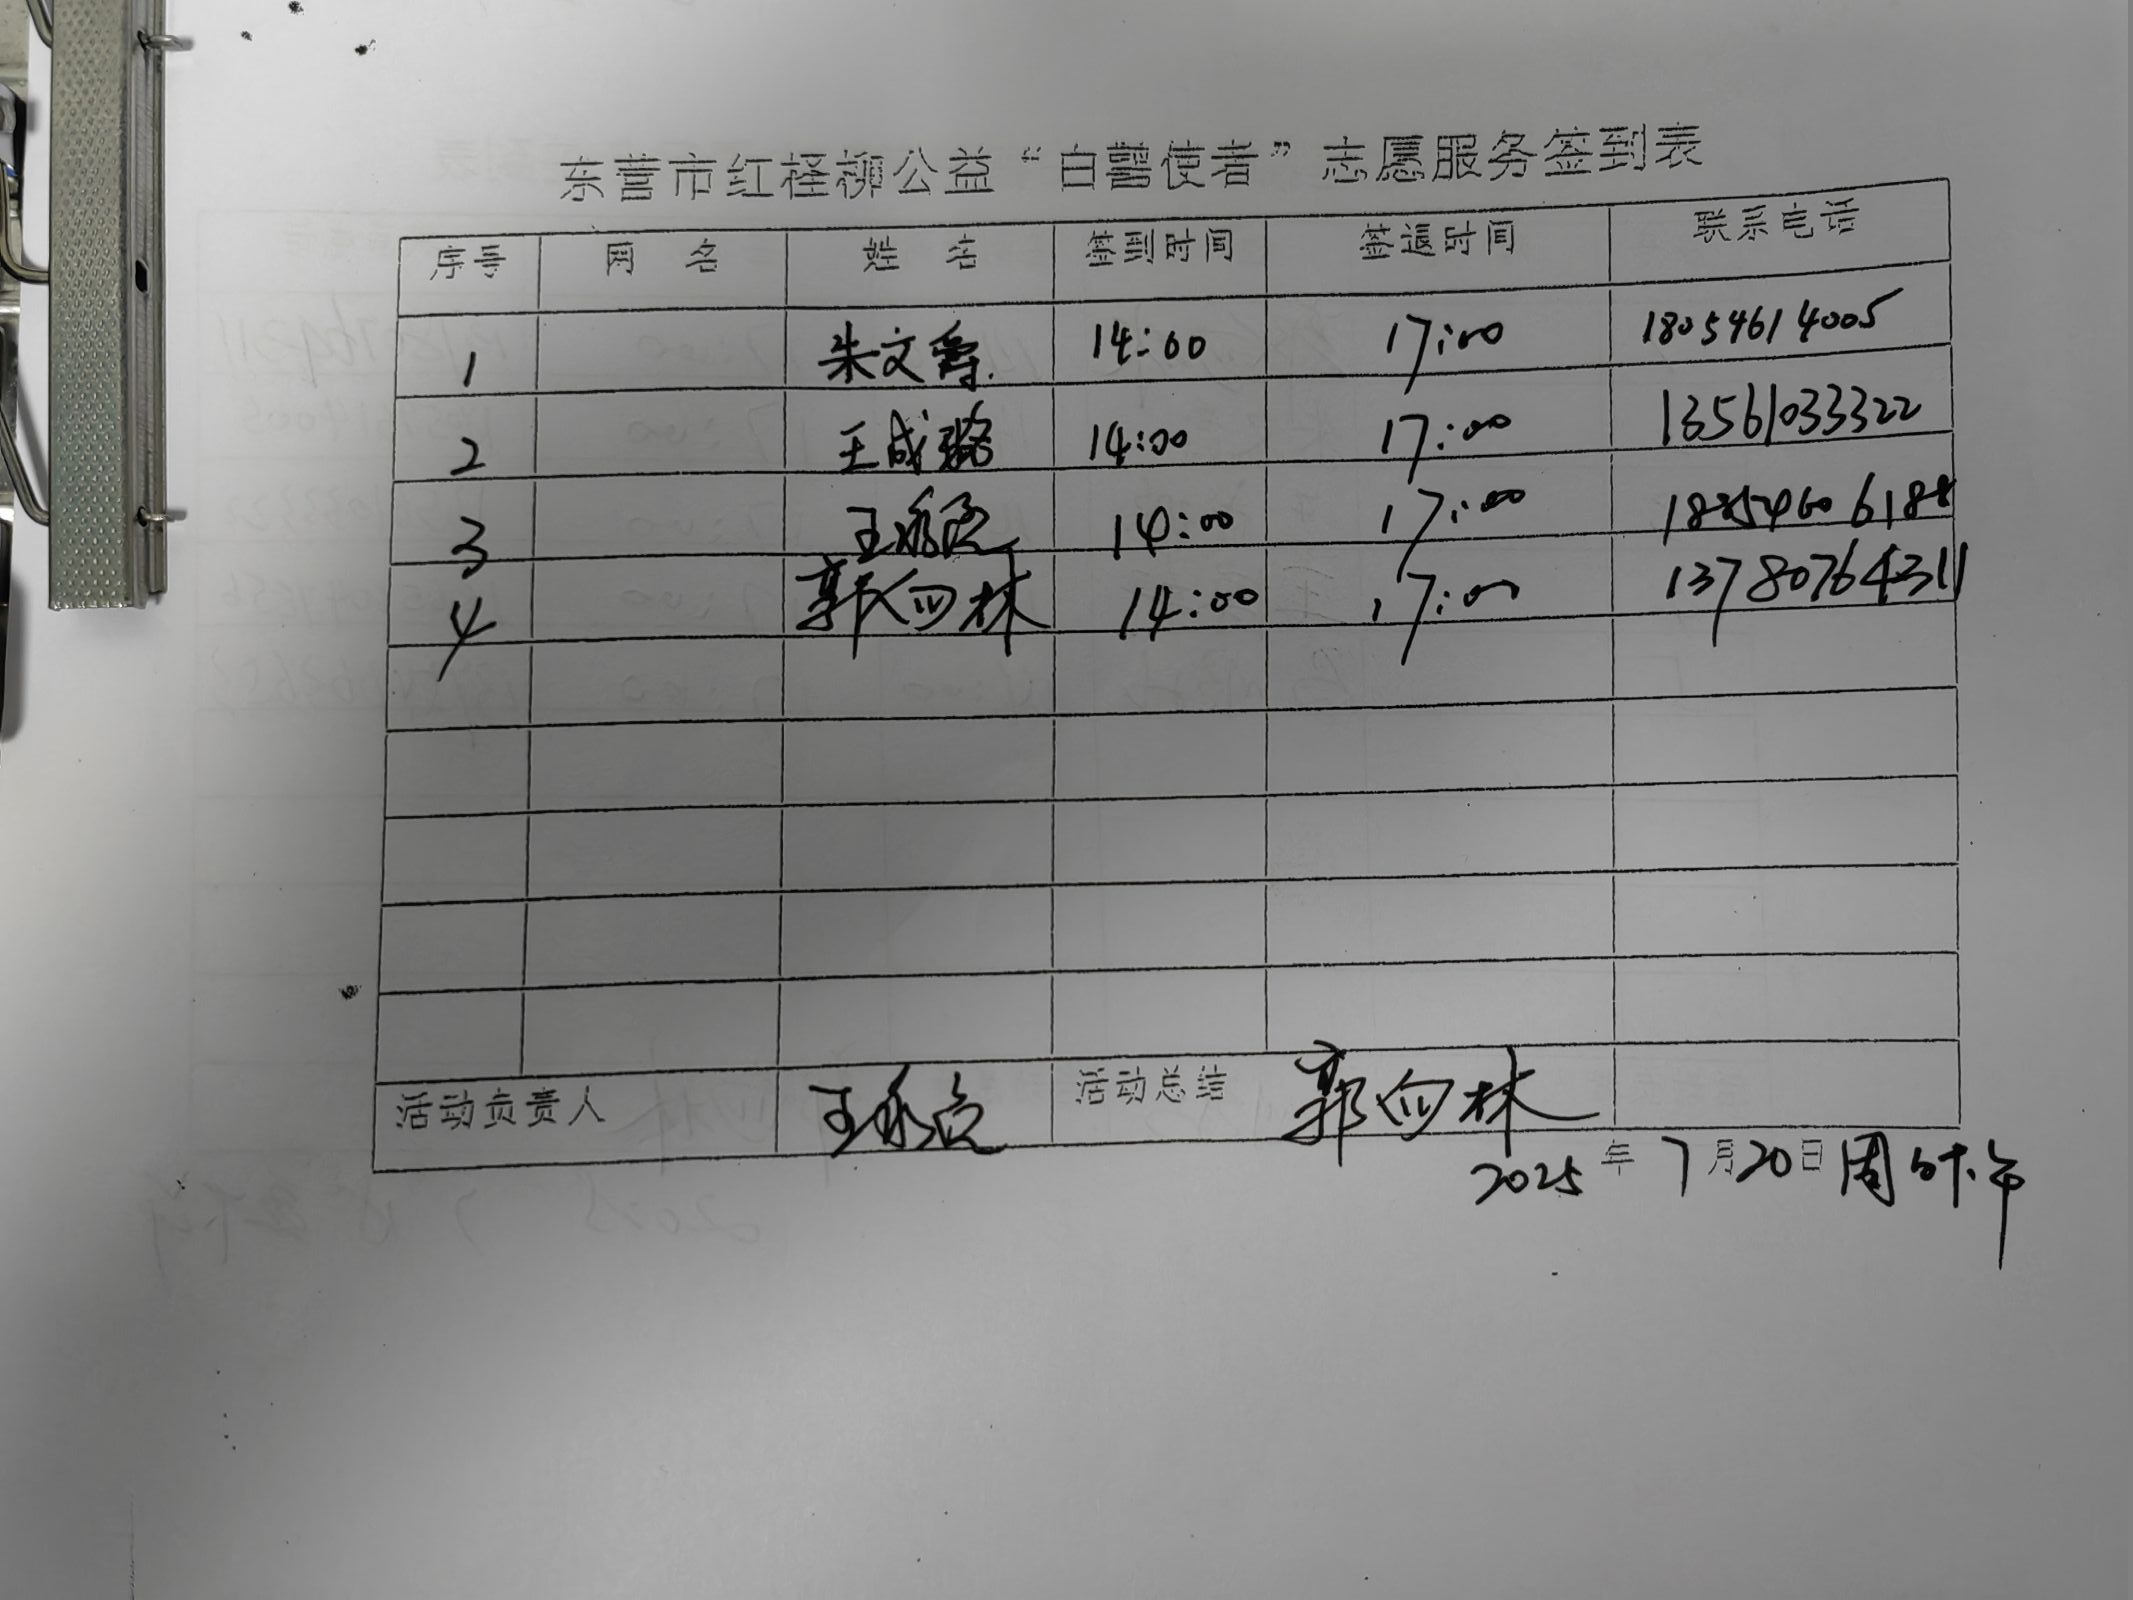 东营市红柽柳公益“白鹭使者”志愿服务签到表
序号 网 名 姓 名 签到时间 签退时间 联系电话
1 朱文 14:00 17:00 18054614005
2 王成璐 14:00 17:00 13561033322
3 王永 14:00 17:00 18854606188
4 郭向林 14:00 17:00 13780764311
活动负责人 王永 活动总结 郭向林
2025年7月20日周 下午